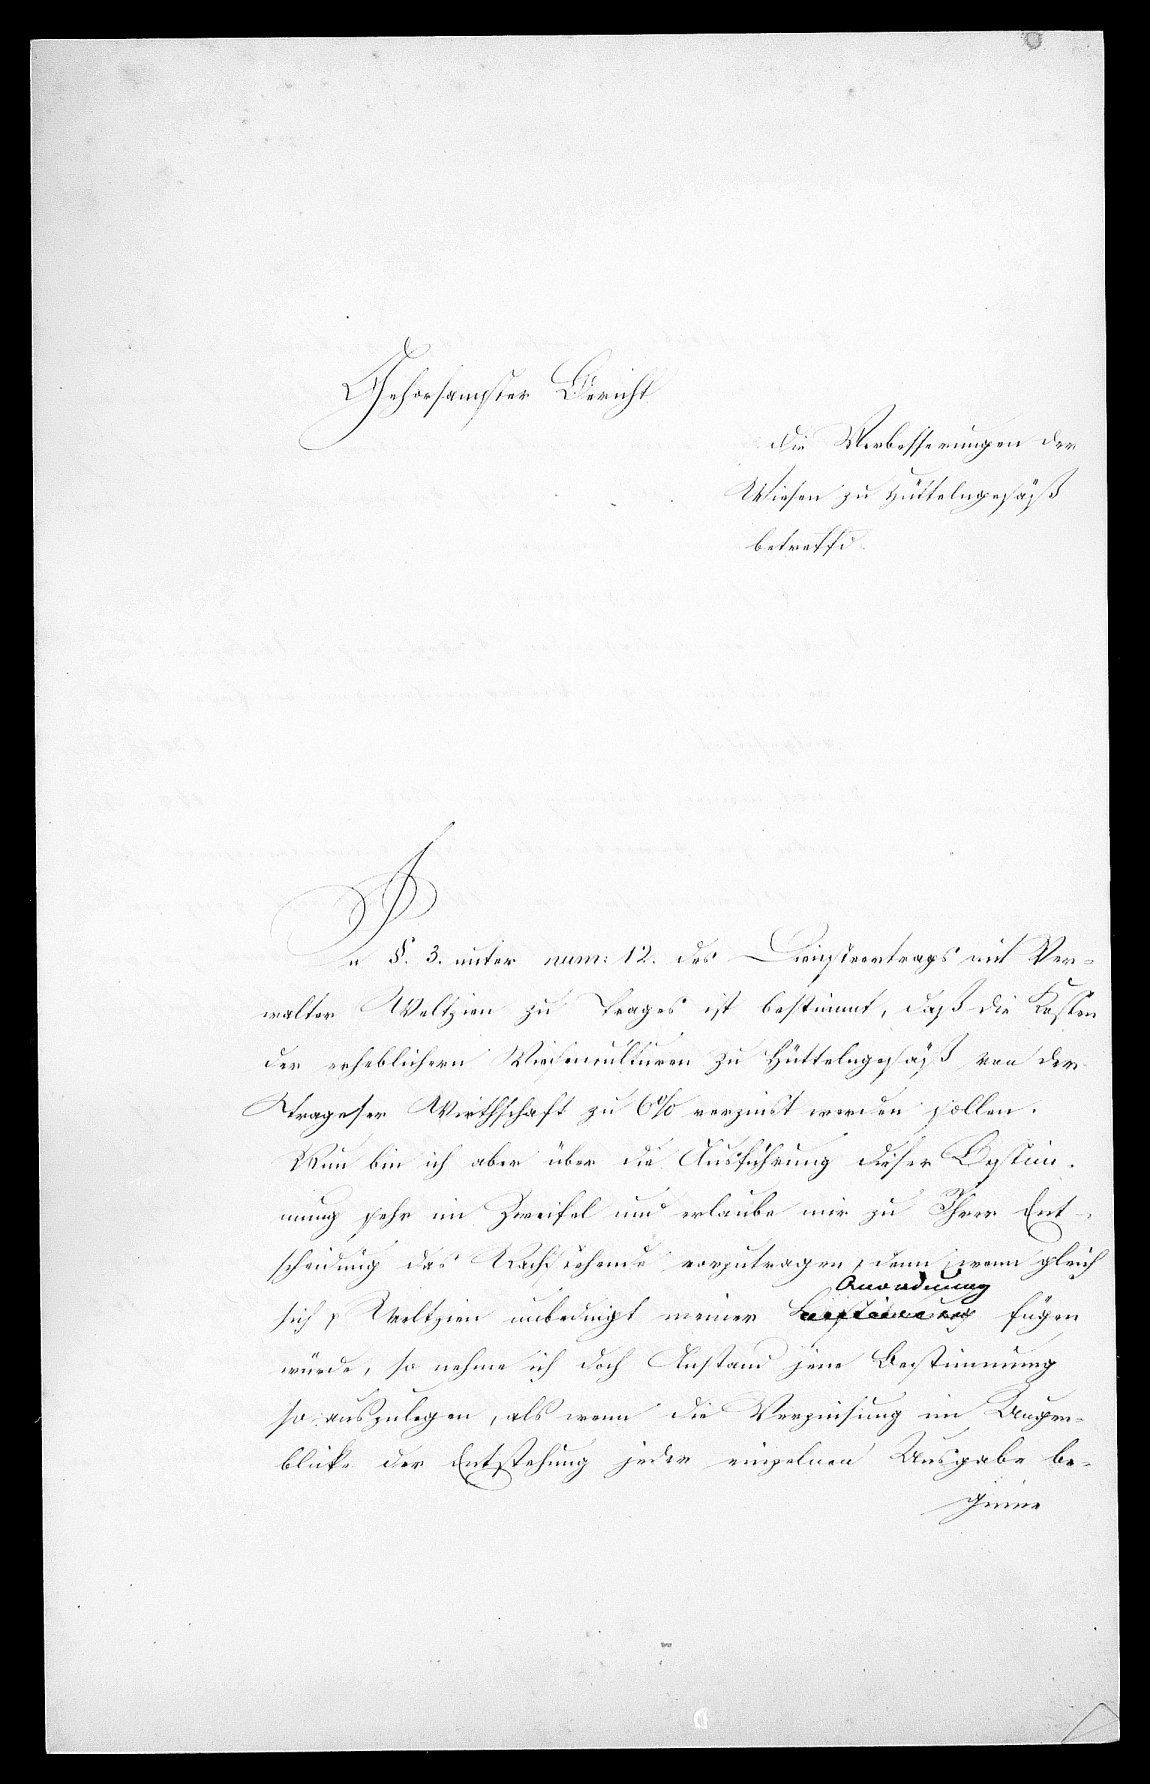 Gehorsamster Bericht
die Verbesserungen der
Wiesen zu Hüttelngesäß
betreffd.
In §. 3. unter num: 12. des Dienstvertrags mit Ver-
walter Weltzien zu Trages ist bestimmt, daß die Kosten
der erheblichern Wiesenculturen zu Hüttelngesäß von der
Trageser Wirthschaft zu 6% verzinst werden sollen.
Nun bin ich aber über die Ausführung dieser Bestim-
mung sehr im Zweifel und erlaube mir zu Ihrer Ent-
scheidung das Nachstehende vorzutragen, denn wenn gleich
Anordnung
sich Weltzien unbedingt meiner Bestimmung fügen
würde, so nehme ich doch Anstand jene Bestimmung
so auszulegen, als wenn die Verzinsung im Augen-
blicke der Entstehung jeder einzelnen Ausgabe be-
ginne